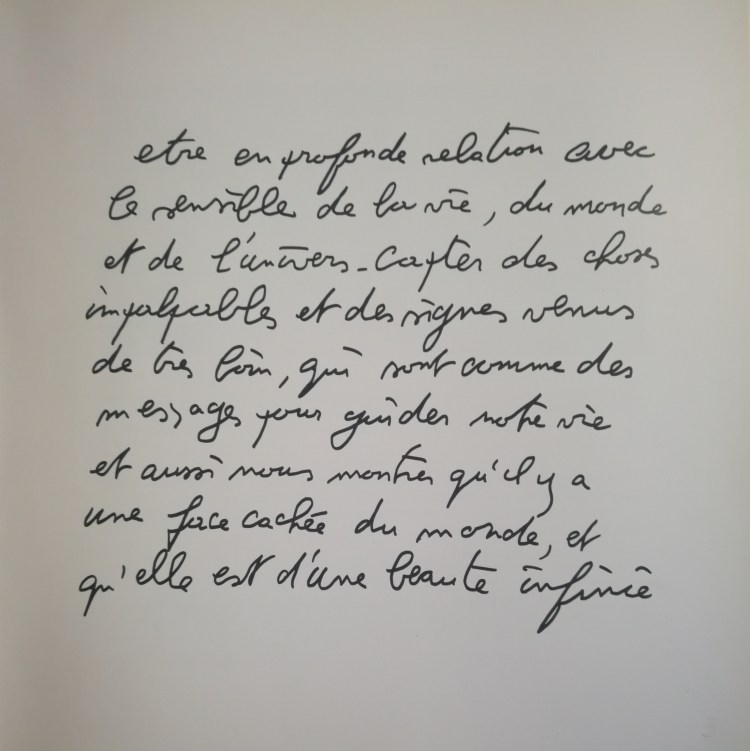 etre en profonde relation avec
le sensible de la vie, du monde
et de l'univers - Capter des choses
impalpables et des signes venus
de très loin, qui sont comme des
messages pour guider notre vie
et aussi nous montrer qu'il y a
une face cachée du monde, et
qu'elle est d'une beauté infinie